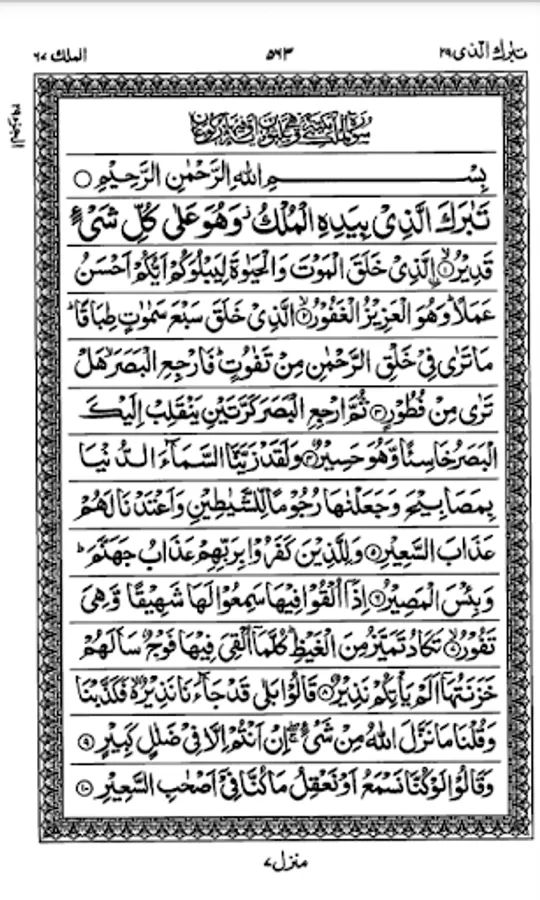 تبٰرك الذی ۲۹
۵۶۳
الملك ۶۷
بِسْمِ اللهِ الرَّحْمٰنِ الرَّحِيْمِ ○
تَبٰرَكَ الَّذِیْ بِيَدِهِ الْمُلْكُ ۫ وَهُوَ عَلٰی كُلِّ شَیْءٍ
قَدِيْرُۙ ۝۱ الَّذِیْ خَلَقَ الْمَوْتَ وَالْحَيٰوةَ لِيَبْلُوَكُمْ اَيُّكُمْ اَحْسَنُ
عَمَلًا ؕ وَهُوَ الْعَزِيْزُ الْغَفُوْرُۙ ۝۲ الَّذِیْ خَلَقَ سَبْعَ سَمٰوٰتٍ طِبَاقًا ؕ
مَا تَرٰی فِیْ خَلْقِ الرَّحْمٰنِ مِنْ تَفٰوُتٍ ؕ فَارْجِعِ الْبَصَرَ ۙ هَلْ
تَرٰی مِنْ فُطُوْرٍ ۝۳ ثُمَّ ارْجِعِ الْبَصَرَ كَرَّتَيْنِ يَنْقَلِبْ اِلَيْكَ
الْبَصَرُ خَاسِئًا وَّهُوَ حَسِيْرٌ ۝۴ وَلَقَدْ زَيَّنَّا السَّمَآءَ الدُّنْيَا
بِمَصَابِيْحَ وَجَعَلْنٰهَا رُجُوْمًا لِّلشَّيٰطِيْنِ وَاَعْتَدْنَا لَهُمْ
عَذَابَ السَّعِيْرِ ۝۵ وَلِلَّذِيْنَ كَفَرُوْا بِرَبِّهِمْ عَذَابُ جَهَنَّمَ ؕ
وَبِئْسَ الْمَصِيْرُ ۝۶ اِذَاۤ اُلْقُوْا فِيْهَا سَمِعُوْا لَهَا شَهِيْقًا وَّهِیَ
تَفُوْرُۙ ۝۷ تَكَادُ تَمَيَّزُ مِنَ الْغَيْظِ ؕ كُلَّمَاۤ اُلْقِیَ فِيْهَا فَوْجٌ سَاَلَهُمْ
خَزَنَتُهَاۤ اَلَمْ يَاْتِكُمْ نَذِيْرٌ ۝۸ قَالُوْا بَلٰی قَدْ جَآءَنَا نَذِيْرٌ ۙ فَكَذَّبْنَا
وَقُلْنَا مَا نَزَّلَ اللهُ مِنْ شَیْءٍ ۖ اِنْ اَنْتُمْ اِلَّا فِیْ ضَلٰلٍ كَبِيْرٍ ۝۹
وَقَالُوْا لَوْ كُنَّا نَسْمَعُ اَوْ نَعْقِلُ مَا كُنَّا فِیْۤ اَصْحٰبِ السَّعِيْرِ ۝۱۰
منزل ۷